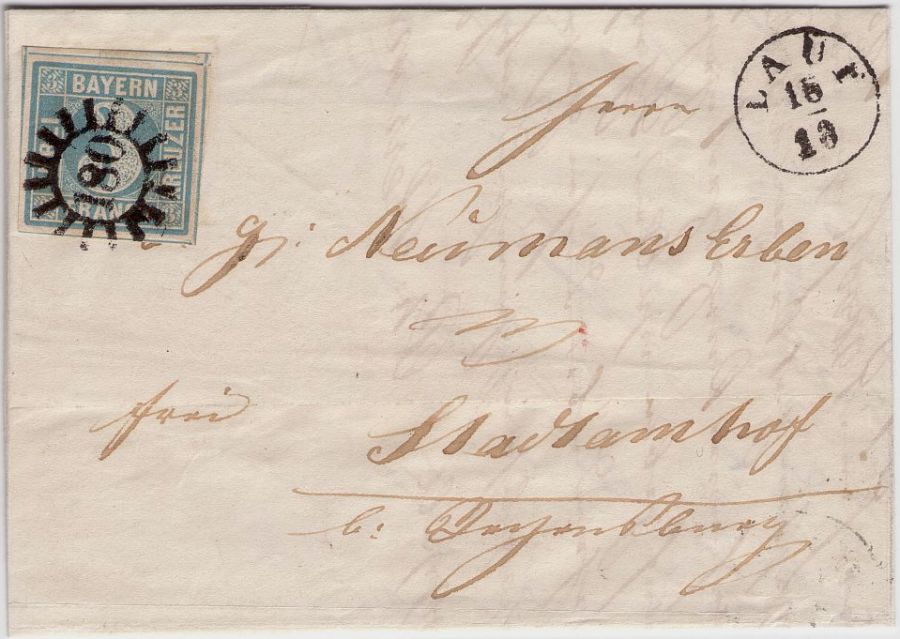 BAYERN
KREUZER
FRANCO
180
LAUF
16
10
Herrn
gj: Neumans Erben
in
frei
Stadtamhof
b: Regensburg